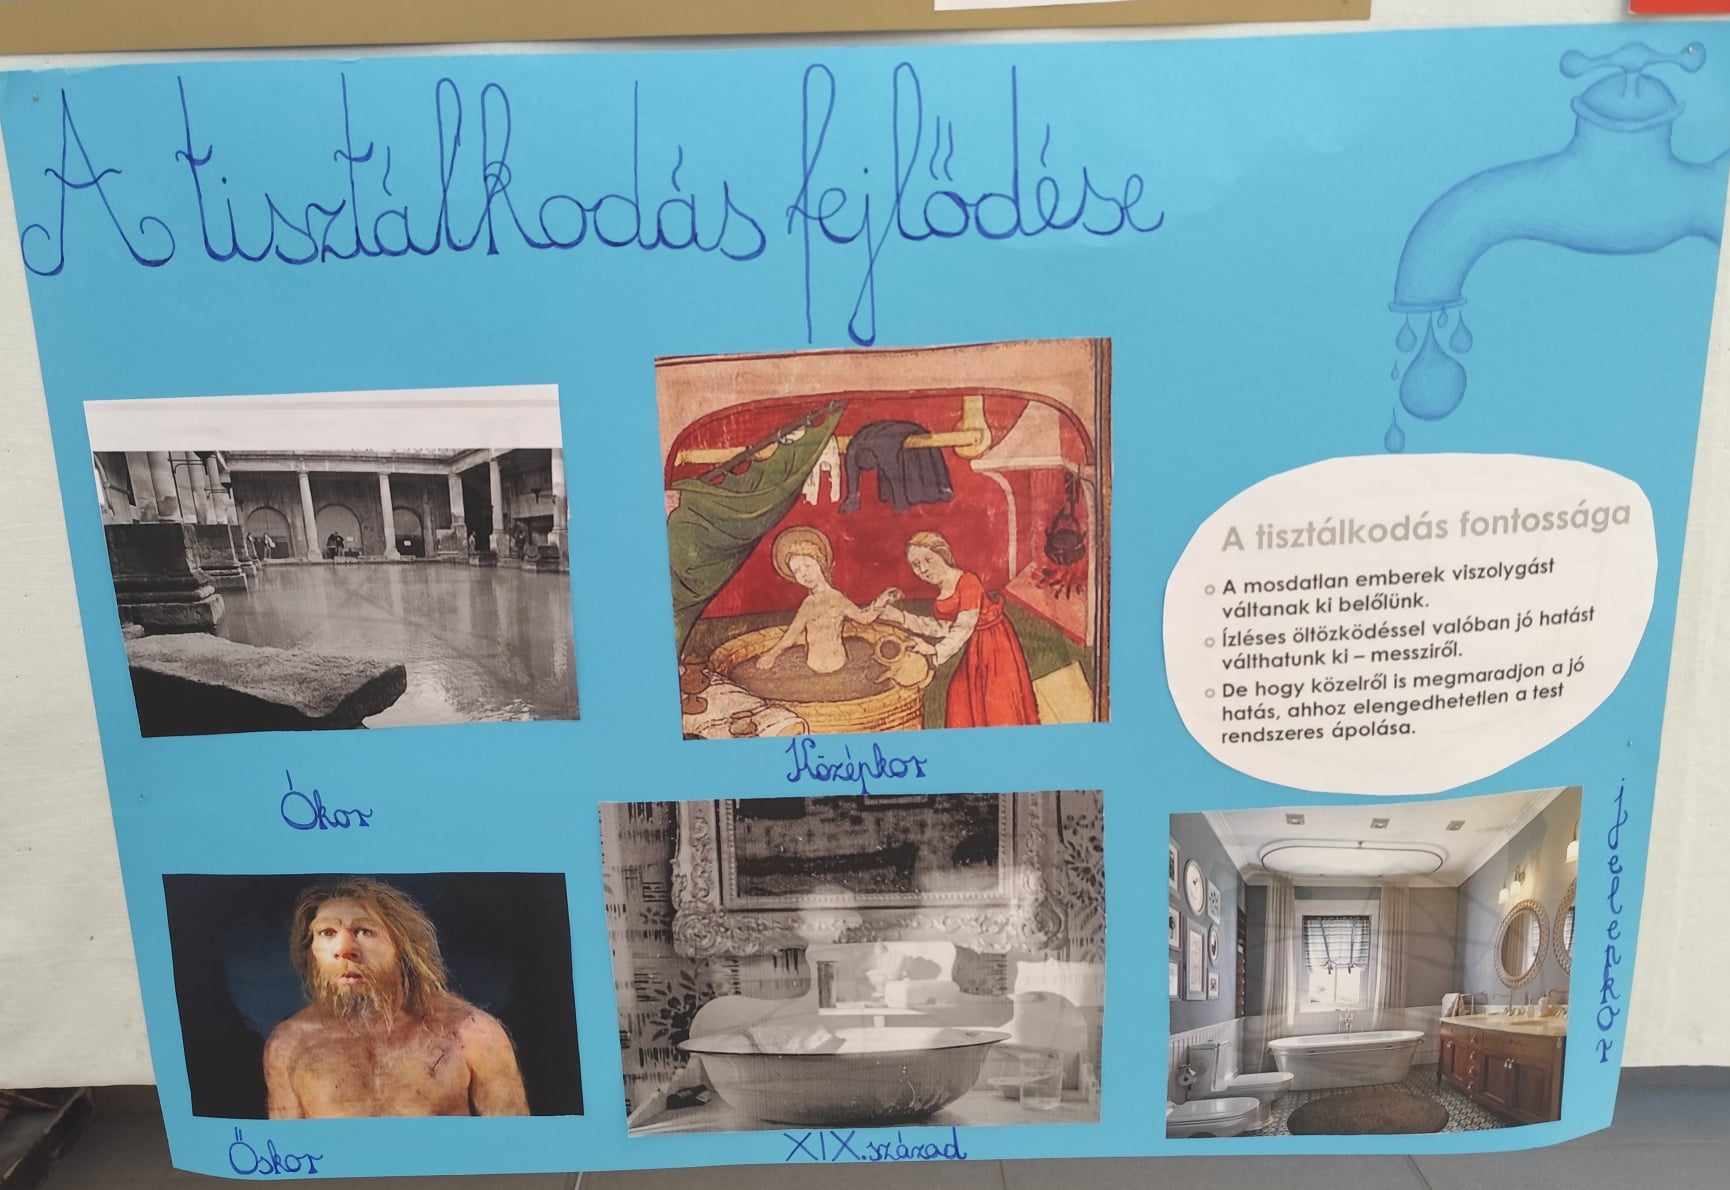 A tisztálkodás fejlődése
A tisztálkodás fontossága
A mosdatlan emberek viszolygást
váltanak ki belőlünk.
Ízléses öltözködéssel valóban jó hatást
válthatunk ki – messziről.
De hogy közelről is megmaradjon a jó
hatás, ahhoz elengedhetetlen a test
rendszeres ápolása.
Ókor
Középkor
Őskor
XIX. század
jelenkor